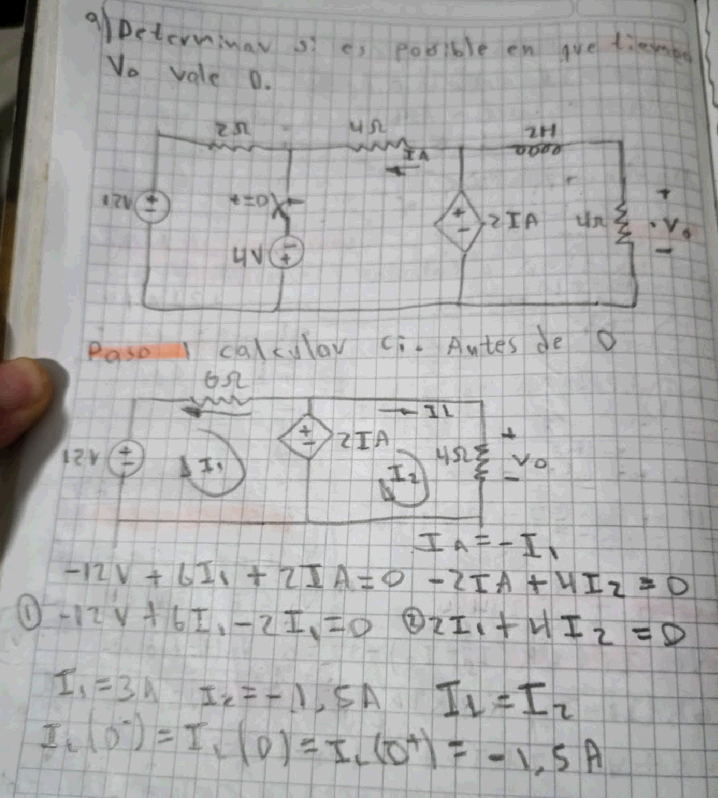 a) Determinar si es posible en que tiempo
Vo vale 0.
2Ω 4Ω 2H
IA
12V t=0 2IA 4Ω + Vo -
4V
Paso 1 calcular Ci. Antes de 0
6Ω
IL
12V I1 2IA I2 4Ω + Vo -
IA = -I1
-12V + 6I1 + 2IA = 0 -2IA + 4I2 = 0
① -12V + 6I1 - 2I1 = 0 ② 2I1 + 4I2 = 0
I1 = 3A I2 = -1,5A IL = I2
IL(0⁻) = IL(0) = IL(0⁺) = -1,5A